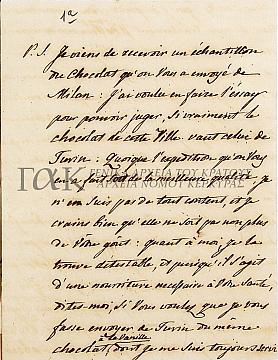 1ª
P. S. Je viens de recevoir un échantillon
du Chocolat qu'on Vous a envoyé de
Milan : J'ai voulu en faire l'essay
pour pouvoir juger, Si vraiment le
chocolat de cette Ville vaut celui de
Turin : Quoique l'expedition qu'on Vous
a fait soit de la meilleure qualité, je
ΓΑΚ ΓΕΝΙΚΑ ΑΡΧΕΙΑ ΤΟΥ ΚΡΑΤΟΥΣ
ΑΡΧΕΙΑ ΝΟΜΟΥ ΚΕΡΚΥΡΑΣ
n'en Suis pas de tout content, et je
crains bien qu'elle ne soit pas non plus
de Vôtre goût : quant à moi, je la
trouve detestable, et puisqu'il s'agit
d'une nourriture necessaire à Vôtre Santé,
dites-moi, Si Vous voulez que je vous
fasse envoyer de Turin du même
à la Vanille
chocolat, dont je me suis toujours servi